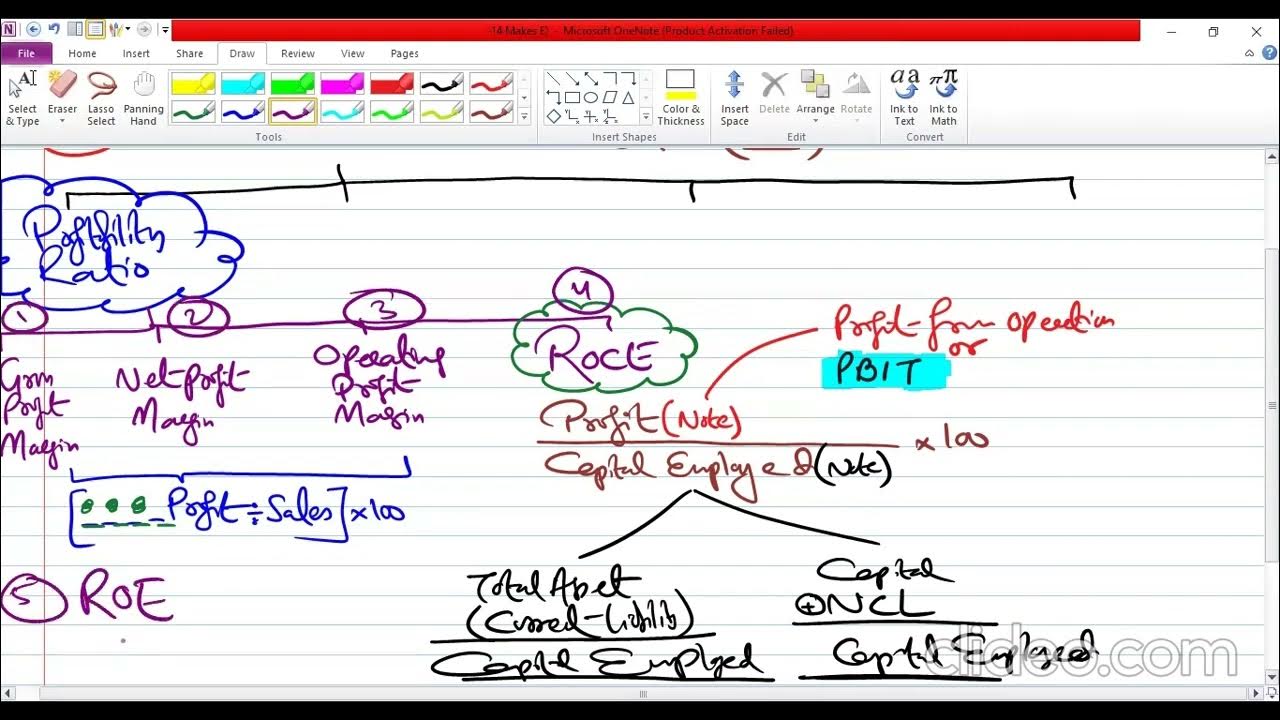 -14 Makes E) - Microsoft OneNote (Product Activation Failed)
File Home Insert Share Draw Review View Pages
Select & Type
Eraser
Lasso Select
Panning Hand
Color & Thickness
Insert Space
Delete
Arrange
Rotate
Ink to Text
Ink to Math
Tools
Insert Shapes
Edit
Convert
Ratio
1
2
3
4
Net Profit
Margin
Operating
Profit
Margin
ROCE
Profit
Margin
Profit from Operation
or
PBIT
Profit (Note)
Capital Employed (Note)
x 100
[ Profit ÷ Sales ] x 100
5 ROE
Total Asset
Capital Employed
Capital
+ NCL
Capital Employed
clideo.com